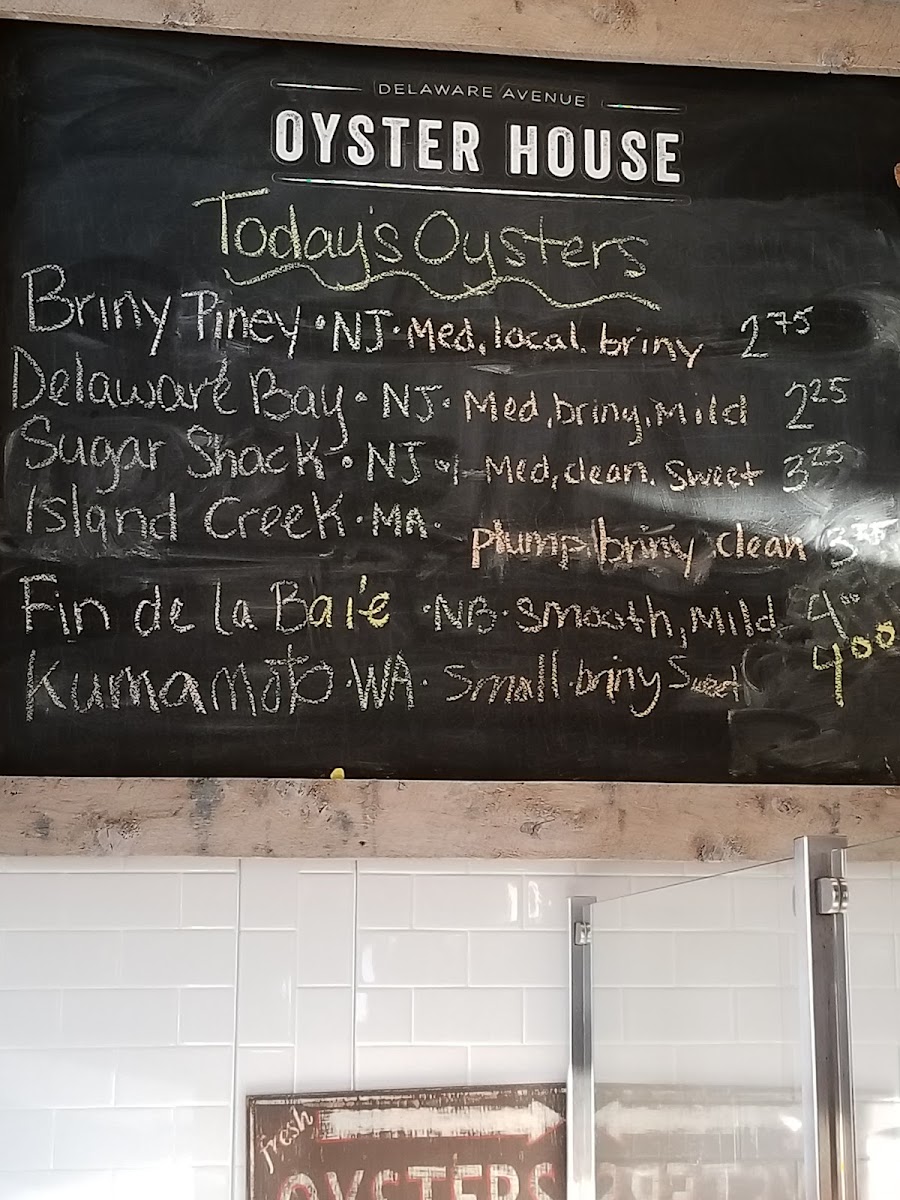 DELAWARE AVENUE
OYSTER HOUSE
Today's Oysters
Briny Piney · NJ · Med, local. briny 2 75
Delaware Bay · NJ · Med, briny, Mild 2 25
Sugar Shack · NJ · Med, clean. Sweet 3 25
Island Creek · MA · plump, briny clean
Fin de la Baie · NB · Smooth, Mild 4 00
Kumamoto · WA · Small briny Sweet 4 00
fresh
OYSTERS